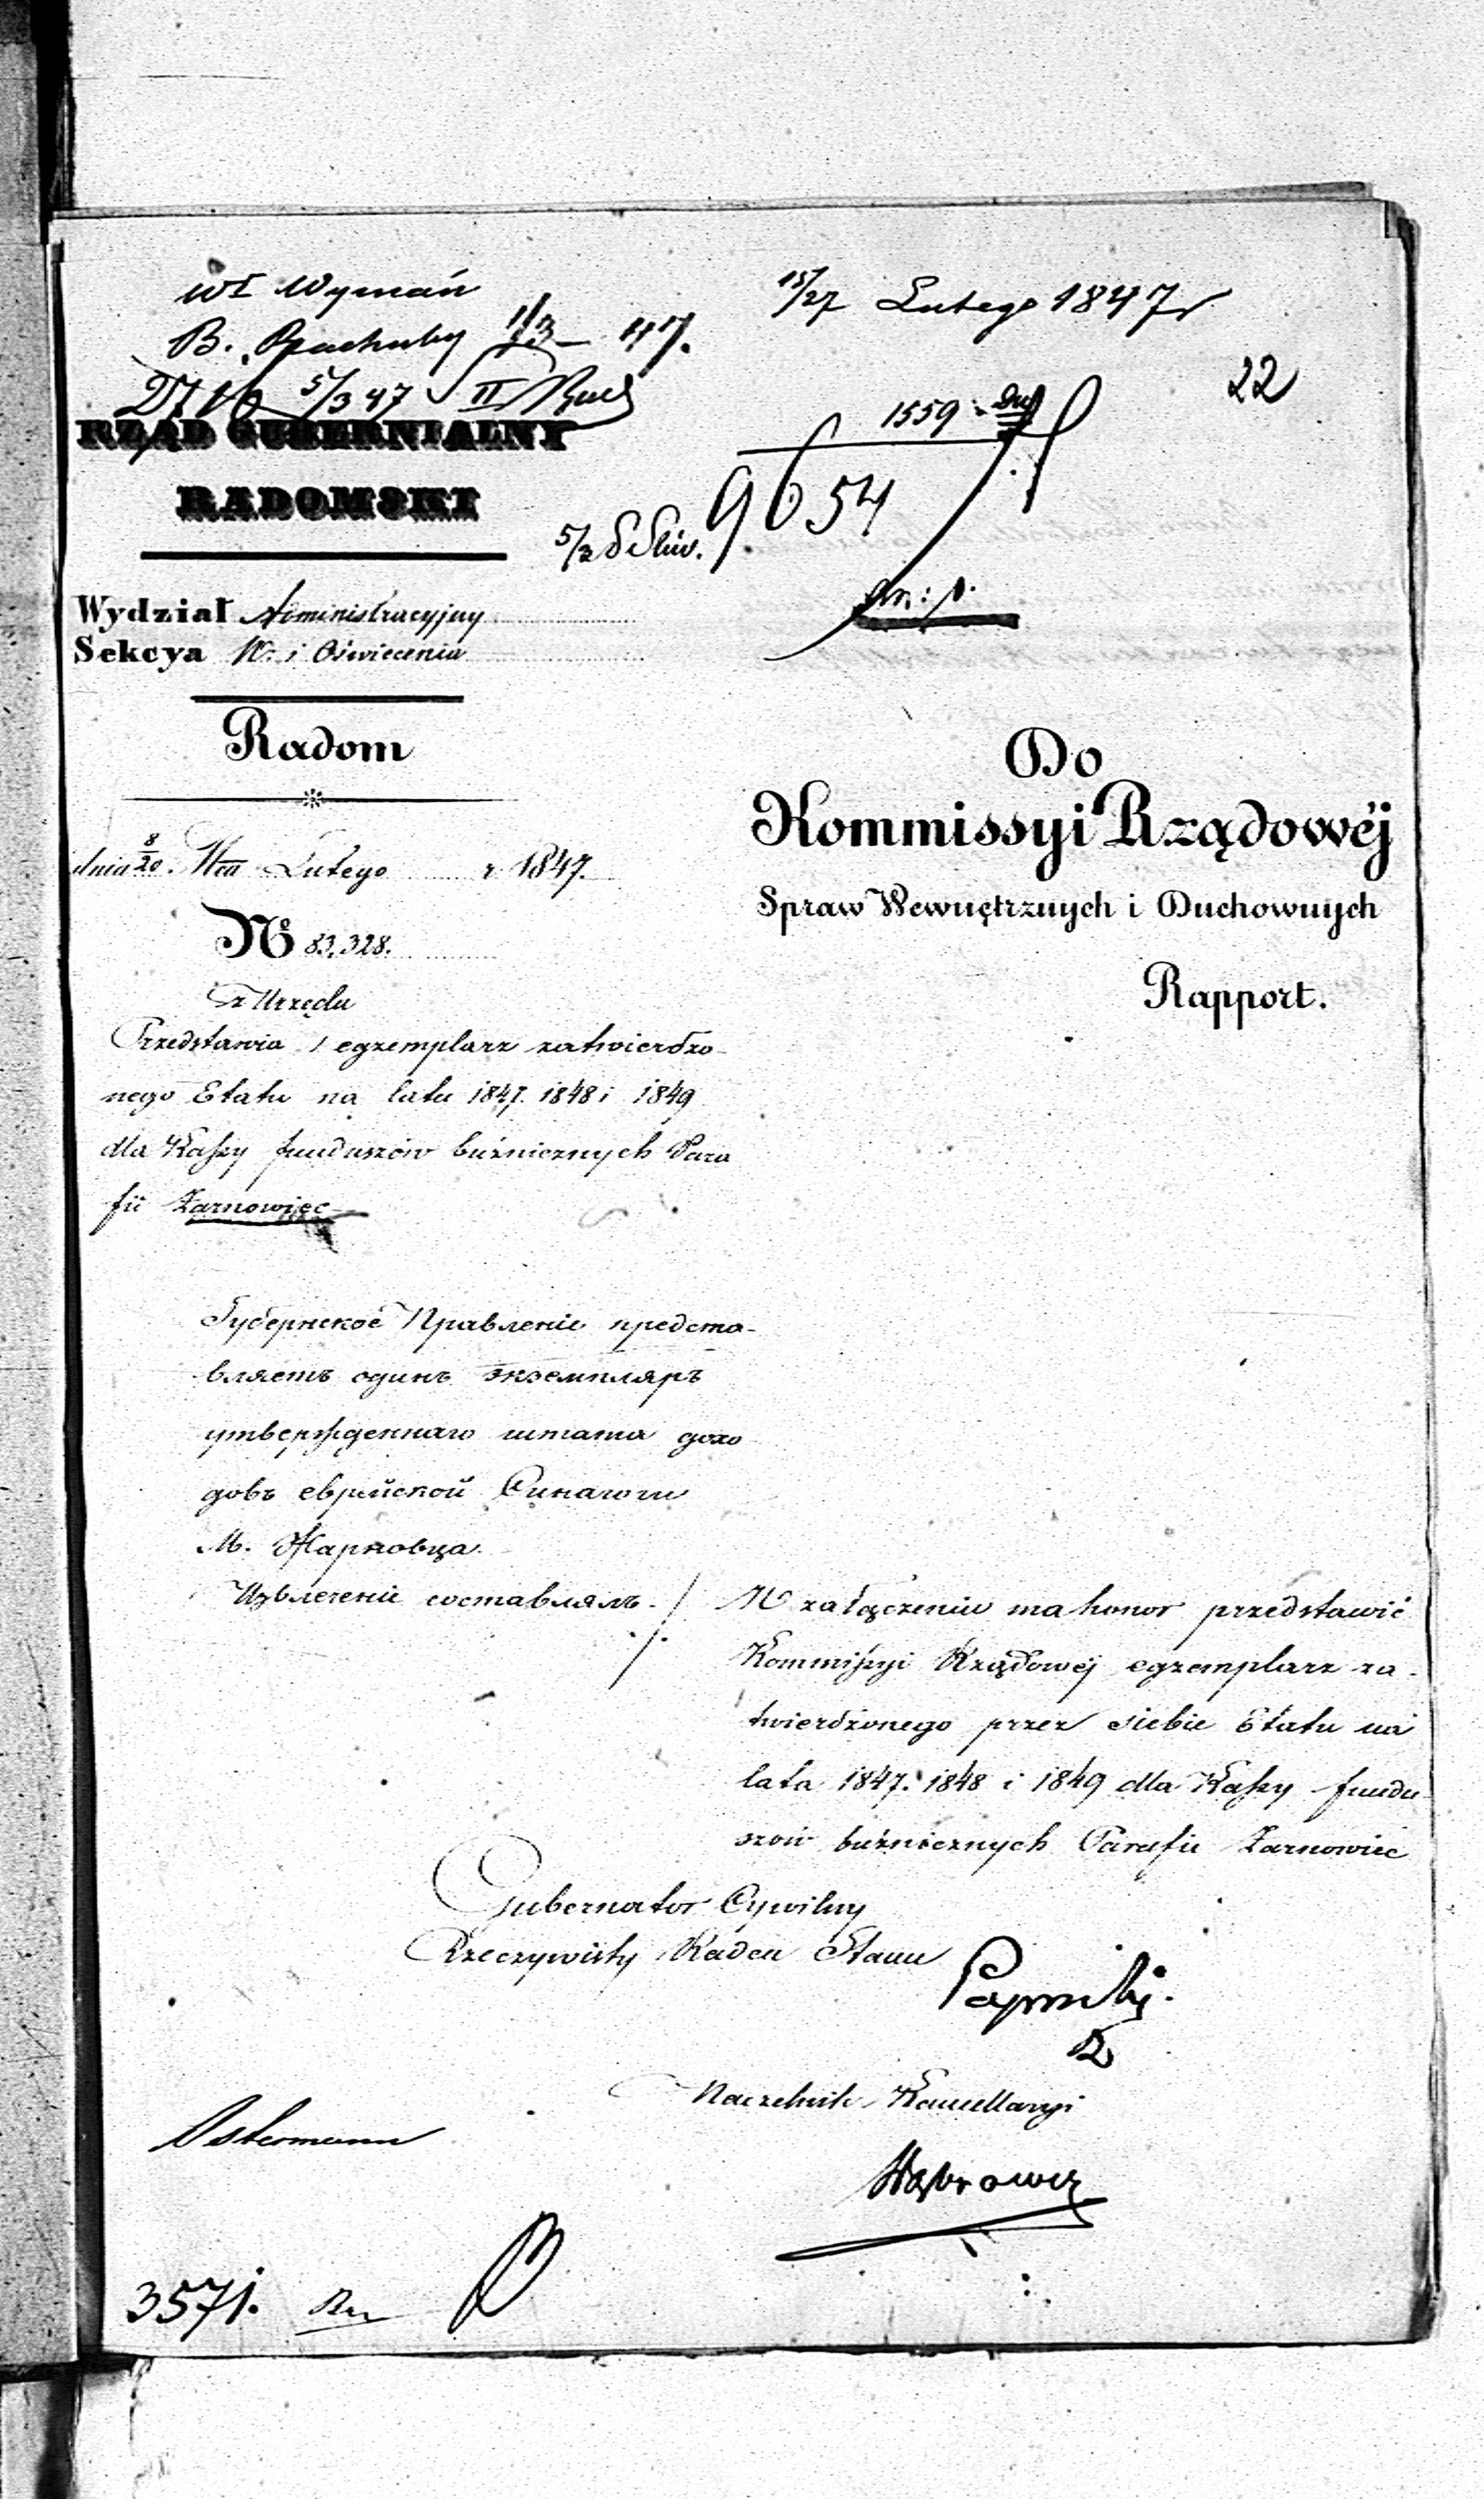 Wł Wyznań
15/27 Lutego 1847 r
B. Rachuby 1/3 47.
5/3 47 II
22
1559
RZĄD GUBERNIALNY
RADOMSKI
9654
5/3
Wydział Administracyjny
Sekcya W. i Oświecenia
Radom
dnia 8/20. Lutego r 1847.
Nº 83,328.
z Urzędu
Przedstawia 1 egzemplarz zatwierdzo-
nego Etatu na lata 1847. 1848 i 1849
dla Kassy funduszów bużnicznych Para
fii Żarnowiec
Do
Kommissyi Rządowéj
Spraw Wewnętrznych i Duchownych
Rapport.
Губернское Правленіе предста-
вляетъ одинъ экземпляръ
утвержденнаго штата дохо
довъ еврейской Синагоги
М. Жарновца.
Извлеченіе составлялъ.
W załączeniu ma honor przedstawić
Kommissyi Rządowéj egzemplarz za-
twierdzonego przez siebie Etatu na
lata 1847. 1848 i 1849 dla Kassy fundu
szów bużnicznych Parafii Żarnowiec
Gubernator Cywilny
Rzeczywisty Radca Stanu
Naczelnik Kancellaryi
Ostermann
3571.